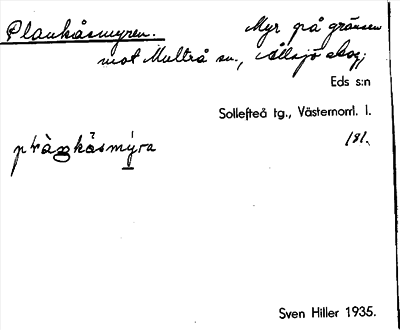 Plankåsmyren. Myr på gränsen
mot Multrå sn., i Ålsjö skog;
Eds s:n
Sollefteå tg., Västernorrl. l.
181.
Sven Hiller 1935.